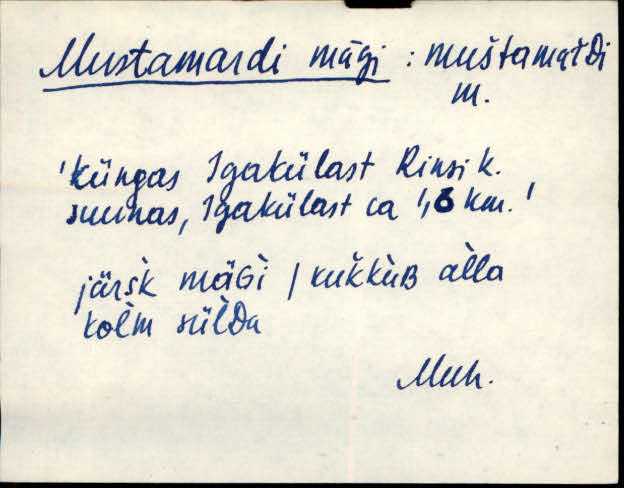 Mustamardi mägi : muštamaᴦDi
m.
'küngas Igakülast Rinsi k.
suunas, Igakülast ca 1,6 km.'
järsk mäGi / kukkuB alla
kolm sülDa
Muh.